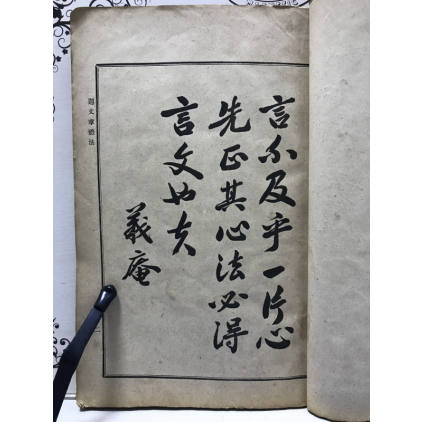 言不及乎一片心
先正其心法必得
言文也夫
義庵
題文章體法